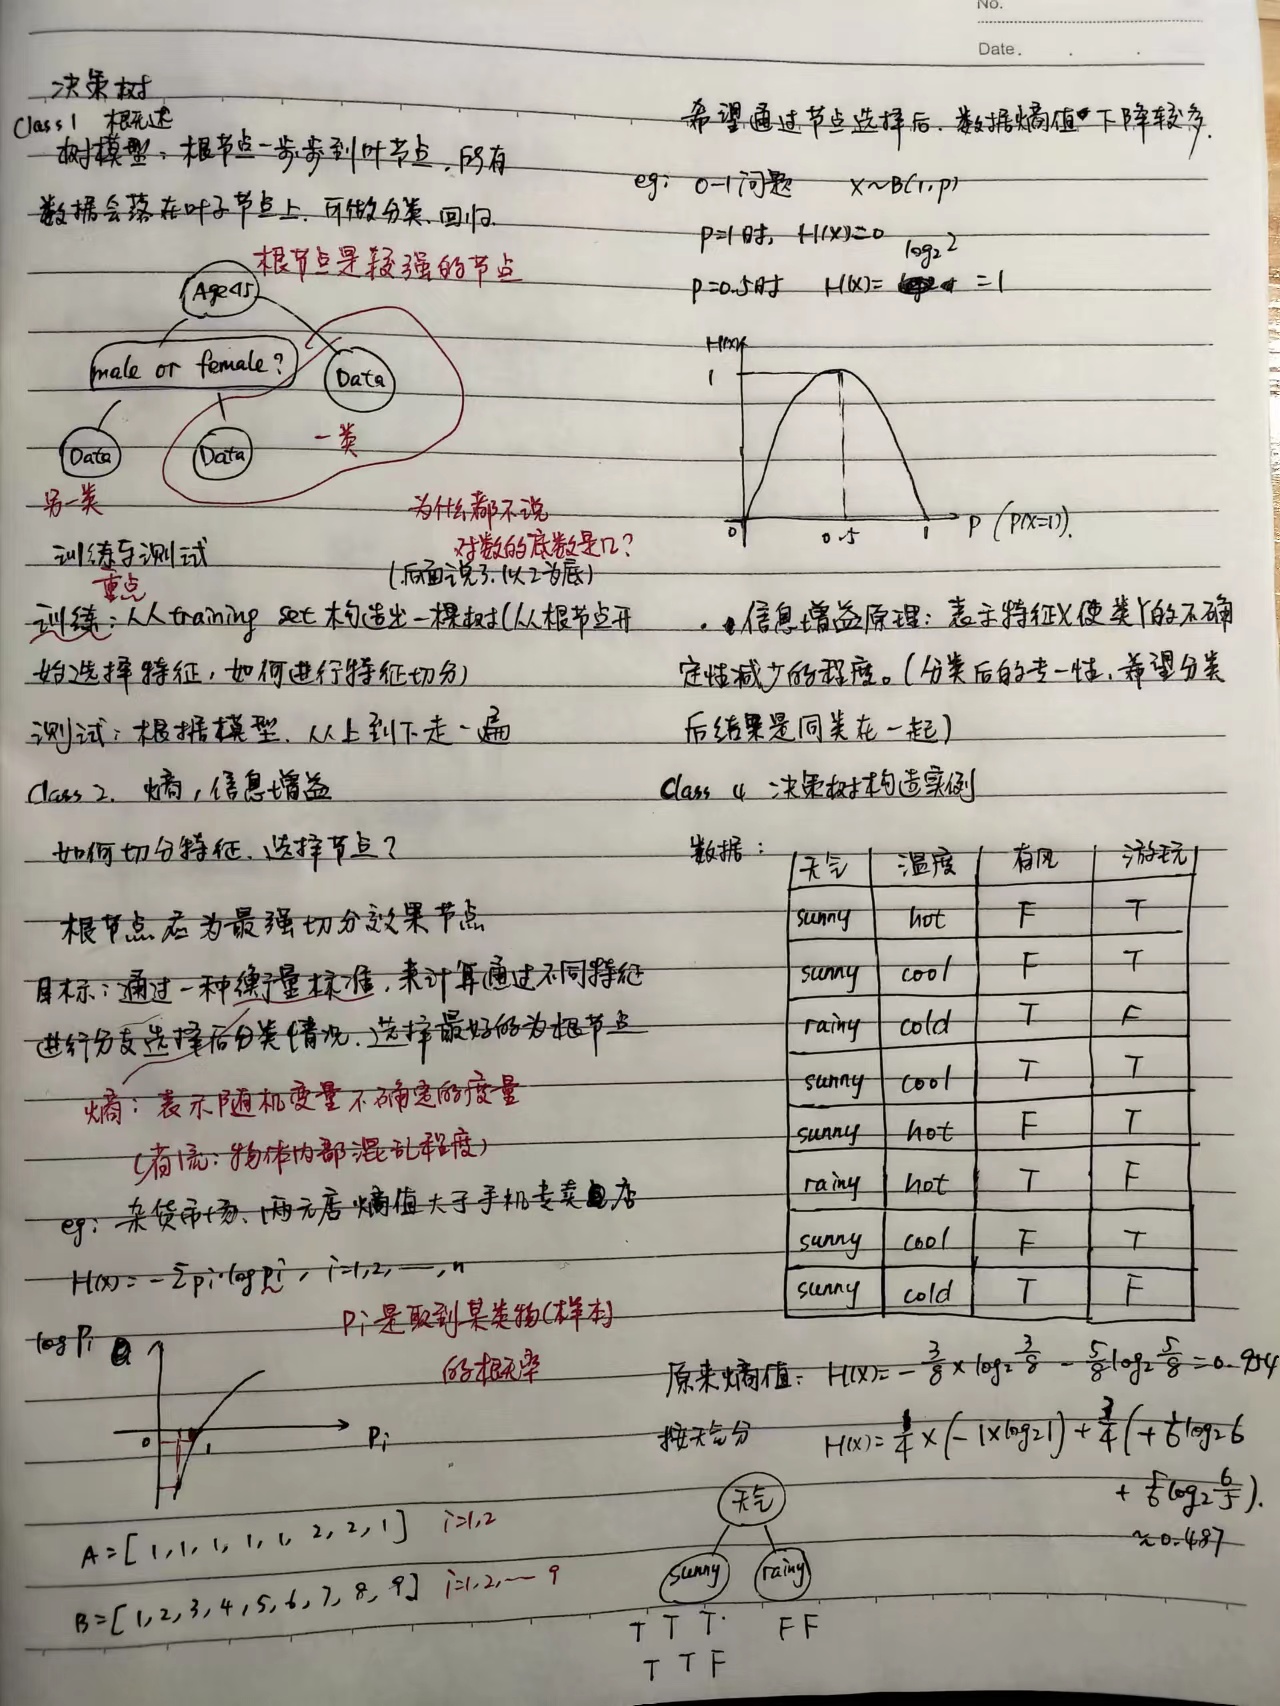 No.
Date.
决策树
Class 1 概述
树模型：根节点一步步到叶节点，所有
数据会落在叶子节点上，可做分类、回归.
根节点是较强的节点
Age<15
male or female?
Data
Data
Data
一类
另一类
训练与测试
重点
训练：从training set构造出一棵树(从根节点开
始选择特征，如何进行特征切分)
测试：根据模型、从上到下走一遍
Class 2. 熵，信息增益
为什么都不说
对数的底数是几？
(后面说了，以2为底)
如何切分特征、选择节点？
根节点应为最强切分效果节点
目标：通过一种衡量标准，来计算通过不同特征
进行分支选择后分类情况、选择最好的为根节点
熵：表示随机变量不确定的度量
(者流：物体内部混乱程度)
eg：杂货市场、两元店熵值大于手机专卖店
H(x)=-Σpi·logpi，i=1,2,—,n
Pi是取到某类物(样本)
的概率
log Pi
0
1
Pi
A=[1,1,1,1,1,2,2,1] i=1,2
B=[1,2,3,4,5,6,7,8,9] i=1,2,…9
希望通过节点选择后、数据熵值下降较多.
eg：0-1问题 X~B(1,p)
P=1时，H(X)=0
P=0.5时 H(X)= log₂2 =1
H(X)
1
0
0.5
1
P (P(X=1)).
· 信息增益原理：表示特征X使类Y的不确
定性减少的程度。(分类后的专一性，希望分类
后结果是同类在一起)
Class 4 决策树构造实例
数据：
天气 温度 有风 游玩
sunny hot F T
sunny cool F T
rainy cold T F
sunny cool T T
sunny hot F T
rainy hot T F
sunny cool F T
sunny cold T F
原来熵值：H(X)=-3/8×log₂3/8-5/8log₂5/8=0.954
按天气分 H(X)=1/4×(-1×log₂1)+3/4(+1/6log₂6
+5/6log₂6/5).
≈0.487
天气
sunny rainy
T T T. F F
T T F